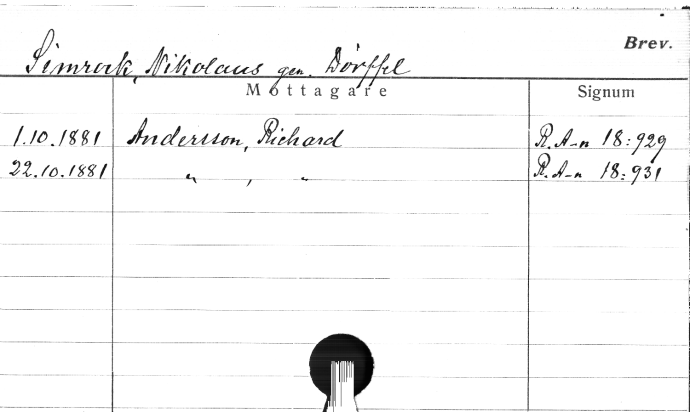 Brev.
Simrock, Nikolaus gen. Dörffel
Mottagare Signum
1.10.1881 Andersson, Richard R.A-n 18:929
22.10.1881 " , " R.A-n 18:931